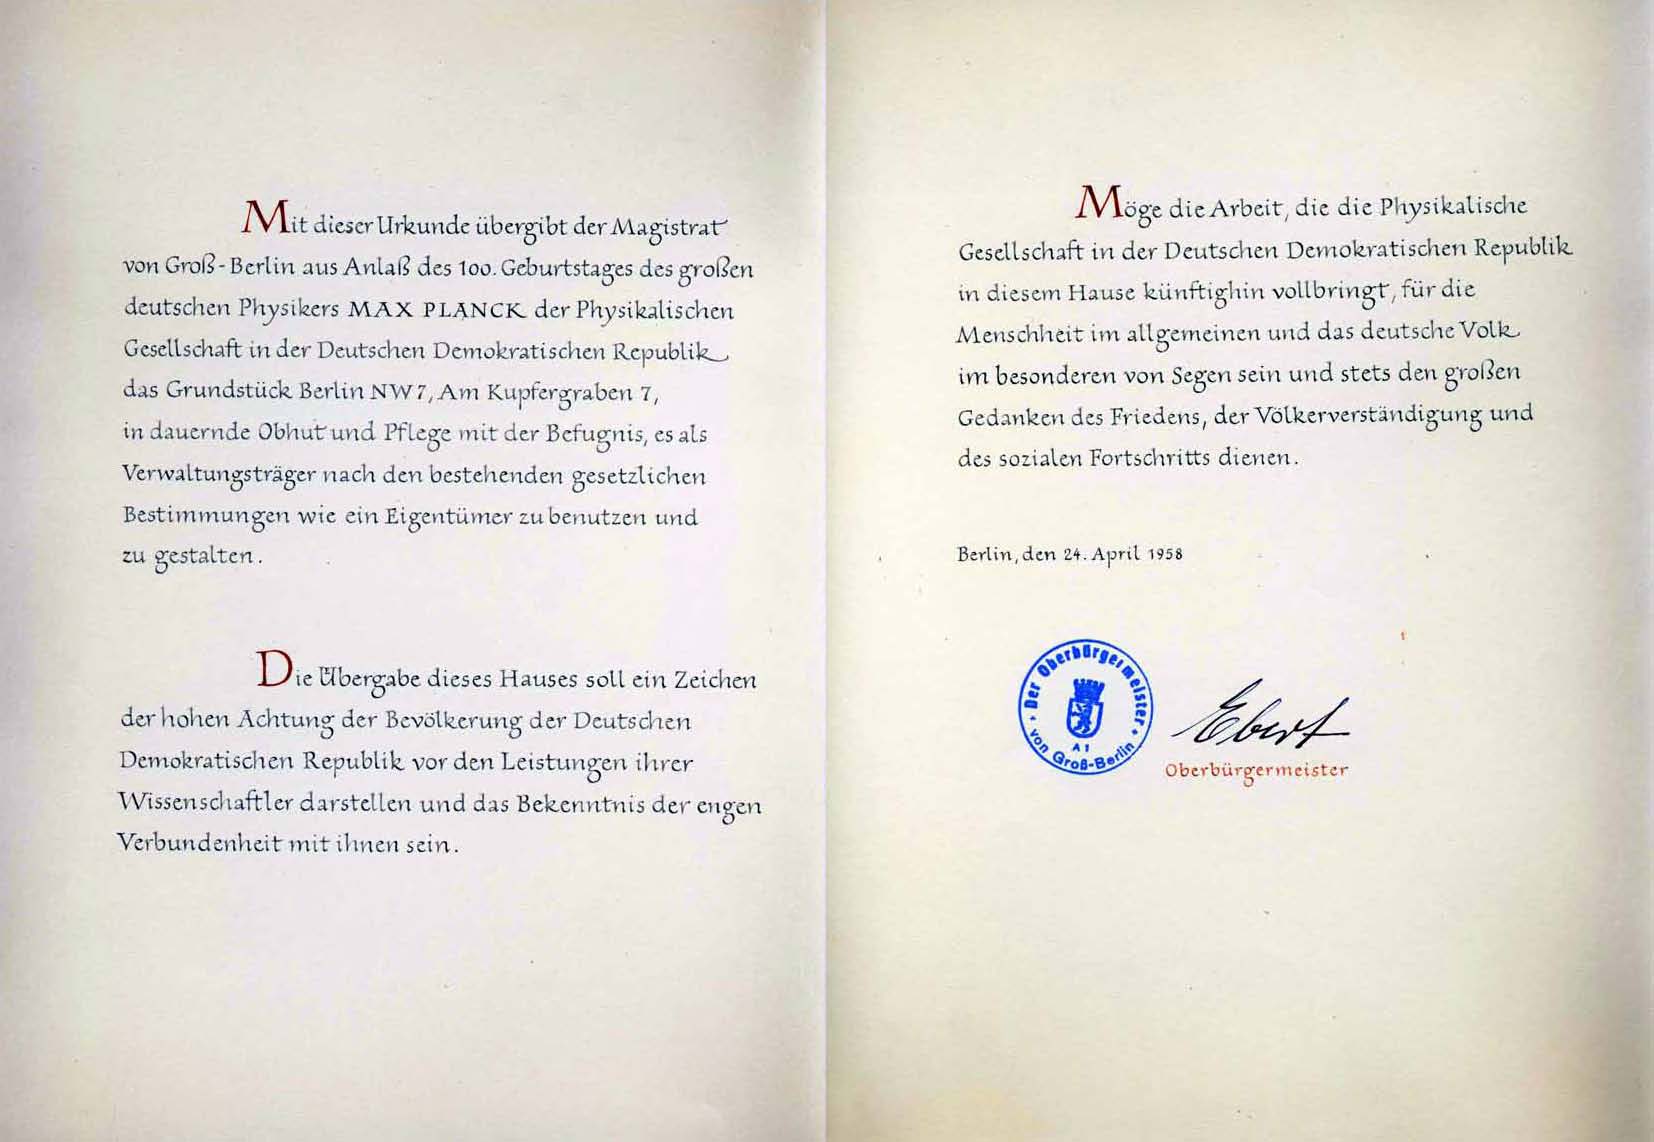 Mit dieser Urkunde übergibt der Magistrat
von Groß-Berlin aus Anlaß des 100. Geburtstages des großen
deutschen Physikers MAX PLANCK der Physikalischen
Gesellschaft in der Deutschen Demokratischen Republik
das Grundstück Berlin NW 7, Am Kupfergraben 7,
in dauernde Obhut und Pflege mit der Befugnis, es als
Verwaltungsträger nach den bestehenden gesetzlichen
Bestimmungen wie ein Eigentümer zu benutzen und
zu gestalten.
Die Übergabe dieses Hauses soll ein Zeichen
der hohen Achtung der Bevölkerung der Deutschen
Demokratischen Republik vor den Leistungen ihrer
Wissenschaftler darstellen und das Bekenntnis der engen
Verbundenheit mit ihnen sein.
Möge die Arbeit, die die Physikalische
Gesellschaft in der Deutschen Demokratischen Republik
in diesem Hause künftighin vollbringt, für die
Menschheit im allgemeinen und das deutsche Volk
im besonderen von Segen sein und stets den großen
Gedanken des Friedens, der Völkerverständigung und
des sozialen Fortschritts dienen.
Berlin, den 24. April 1958
Der Oberbürgermeister
von Groß-Berlin
A 1
Ebert
Oberbürgermeister